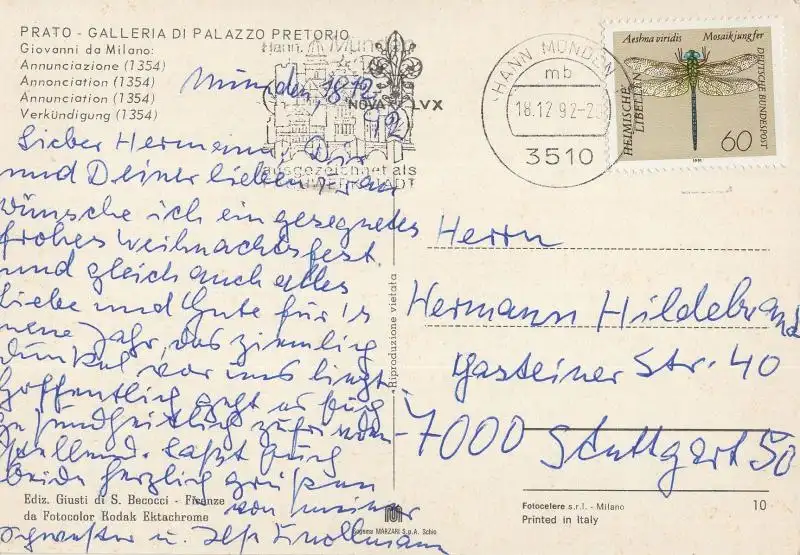 PRATO - GALLERIA DI PALAZZO PRETORIO
Giovanni da Milano:
Annunciazione (1354)
Annonciation (1354)
Annunciation (1354)
Verkündigung (1354)
Hann. Münden
NOVA LVX
ausgezeichnet als
HANN MÜNDEN
mb
18.12.92-20
3510
Aeshna viridis Mosaikjungfer
HEIMISCHE LIBELLEN
DEUTSCHE BUNDESPOST
60
1991
Münden, 18.12.
92
Lieber Hermann, Dir
und Deiner lieben Frau
wünsche ich ein gesegnetes
frohes Weihnachtsfest
und gleich auch alles
Liebe und Gute für's
neue Jahr, das ziemlich
dunkel vor uns liegt.
Hoffentlich geht es Euch
gesundheitlich zufrieden-
stellend. Laßt Euch
beide herzlich grüßen
von meiner
Schwester u. Ilse Knollmann
Herrn
Hermann Hildebrand
Gasteiner Str. 40
7000 Stuttgart 50
Riproduzione vietata
Ediz. Giusti di S. Becocci - Firenze
da Fotocolor Kodak Ektachrome
Sogema MARZARI S.p.A. Schio
Fotocelere s.r.l. - Milano
Printed in Italy
10